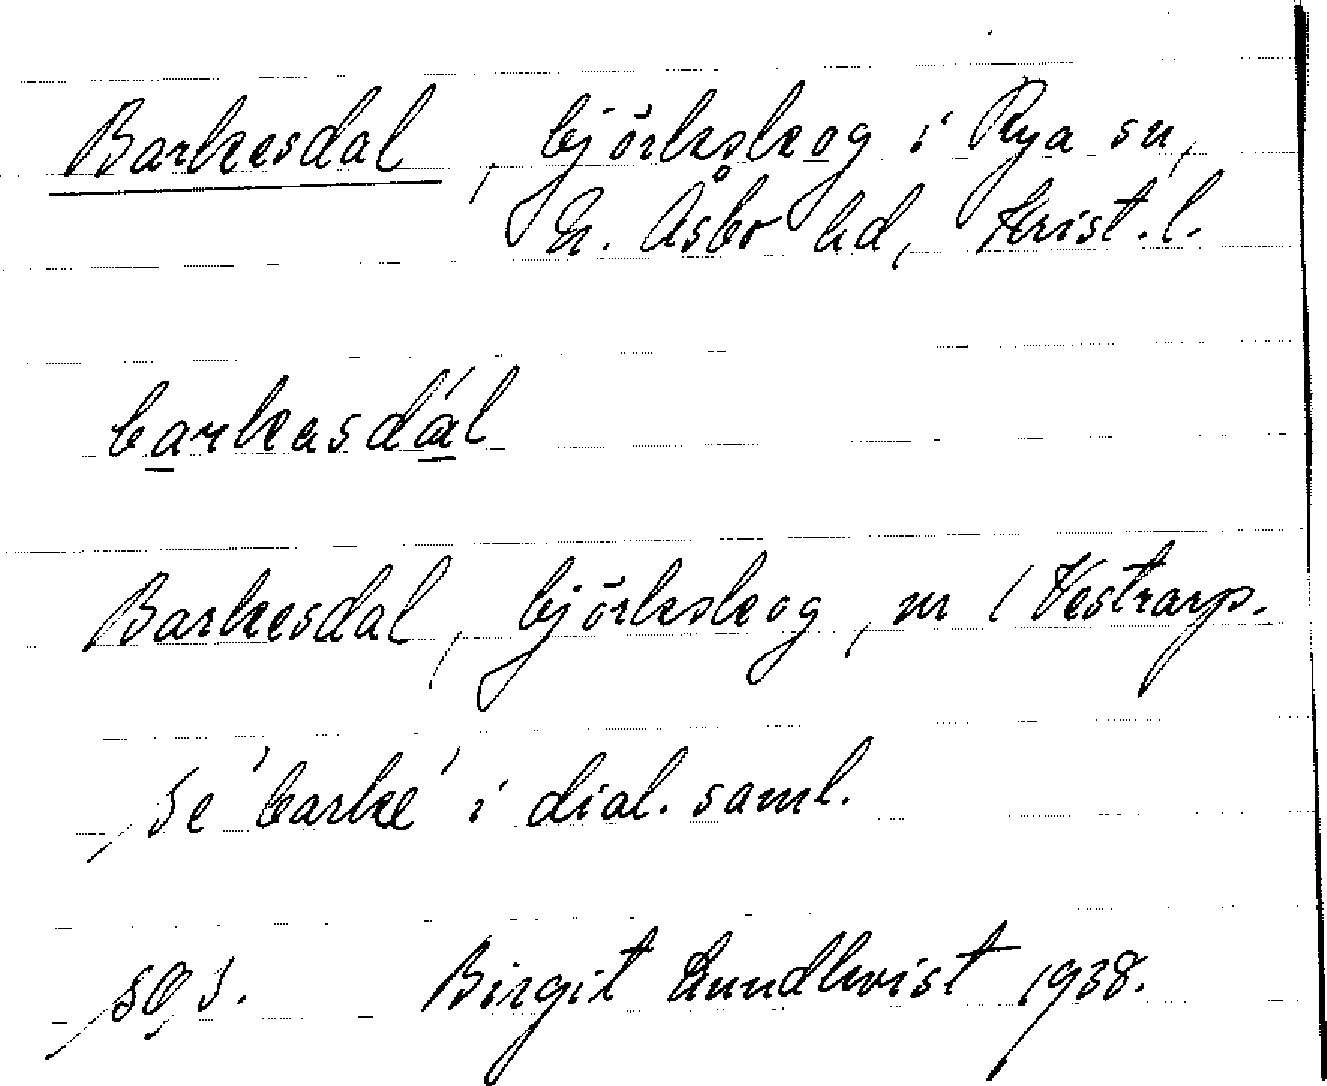 Barkesdal, björkskog i Rya sn,
N. Åsbo hd, Krist. l.
barkasdál
Barkesdal, björkskog, nr 1 Vestrarp.
Se 'barke' i dial. saml.
Birgit Lundkvist 1938.